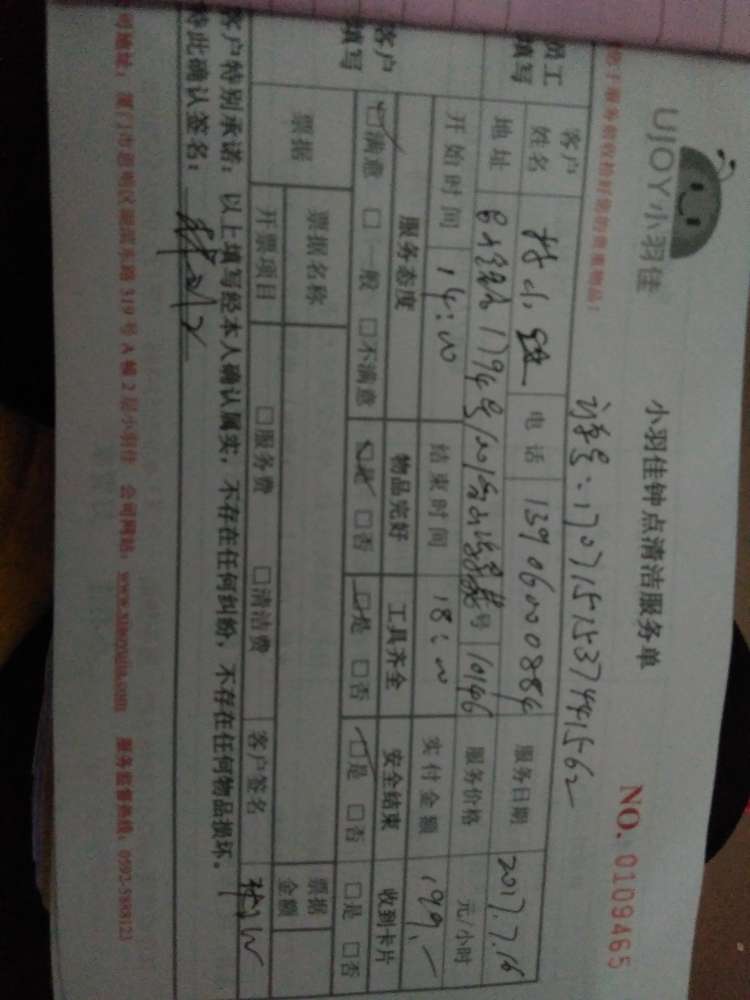 UJOY小羽佳
小羽佳钟点清洁服务单
NO. 0109465
1707151537441562
客户姓名 电话 13906000884 服务日期 2017.7.16
员工填写
地址 1794号 号 10146 服务价格 元/小时
开始时间 14:00 结束时间 18:00 实付金额 199.-
客户填写
服务态度 物品完好 工具齐全 安全结束 收到卡片
□满意 □一般 □不满意 □是 □否 □是 □否 □是 □否 □是 □否
票据 票据名称 票据金额
开票项目 □服务费 □清洁费 客户签名
客户特别承诺：以上填写经本人确认属实，不存在任何纠纷，不存在任何物品损坏。
特此确认签名：
司地址：厦门市思明区湖滨东路319号A幢2层小羽佳 公司网站：www.xiaoyujia.com 服务监督热线：0592-5888123